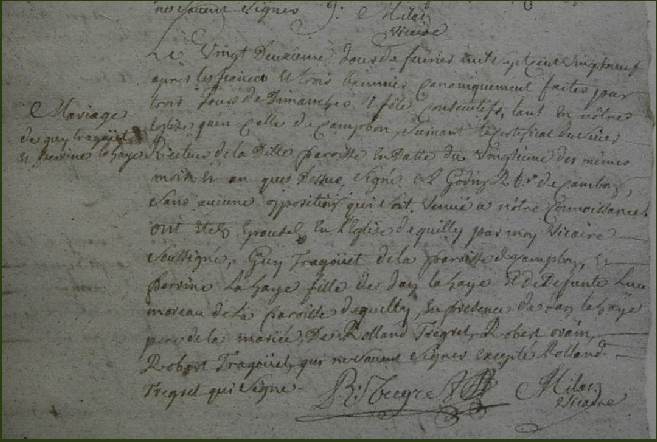 ne savent signer
Milon
Vicaire
Mariage
de guy tragoüet
et perrine la haye
Le Vingt Deuxieme Jour de fevrier
apres les fiances et trois bannies canoniquement faites par
trois Jours de Dimanches et fête Consecutifs, tant en nôtre
Eglise qu'en Celle de Campbon, suivant le certificat du sieur
Recteur de la Ditte paroisse En datte du Vingtieme des mêmes
mois et an que Dessus, signé
sans aucune opposition qui soit Venuë a nôtre Connoissance
ont Etez Epousez En l'Eglise de quilly par moy Vicaire
soussigné, Guy Tragoüet de la paroisse de Campbon, et
perrine La haye fille de Jan la haye et de Defunte Luce
moreau de la paroisse de quilly, En presence de Jan la haye
pere de la mariée, De Rolland Tregret, Robert
Robert Tragoüet, qui ne savent signer excepté Rolland
Tregret qui signe
Milon
Vicaire